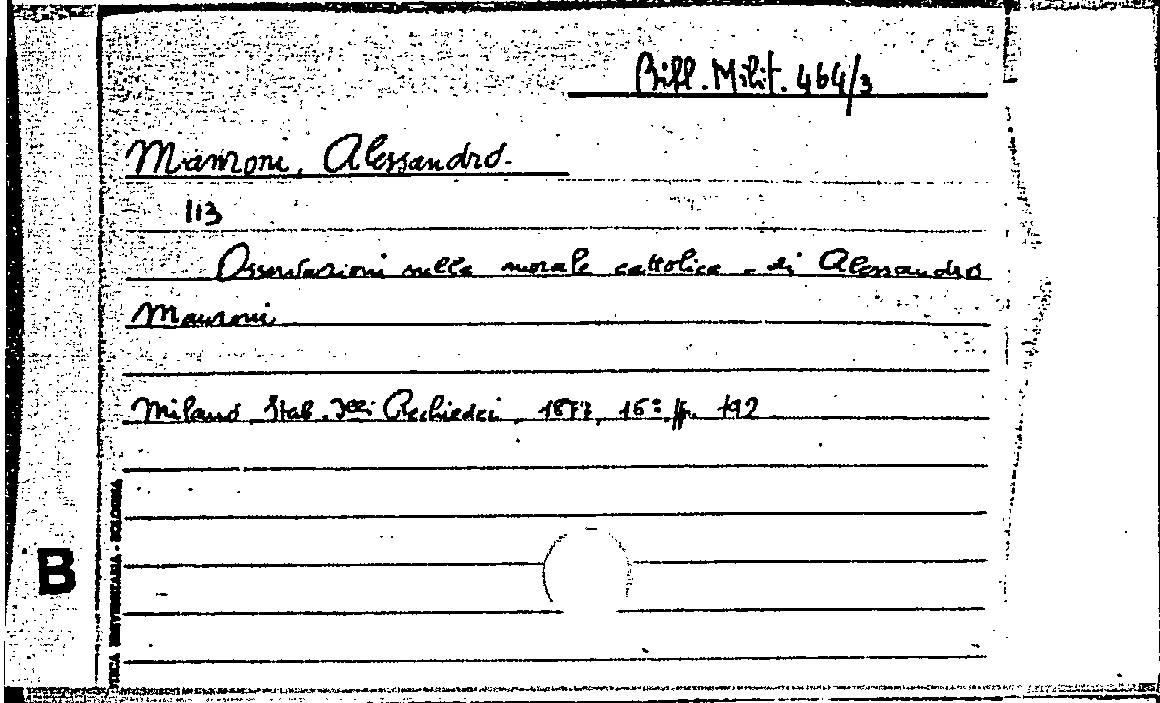 Bibl. Milit. 464/3
Manzoni, Alessandro.
113
Osservazioni sulla morale cattolica - di Alessandro
Manzoni
Milano Stab. Flli Rechiedei, 1877, 16º pp. 192
B
TECA UNIVERSITARIA - BOLOGNA